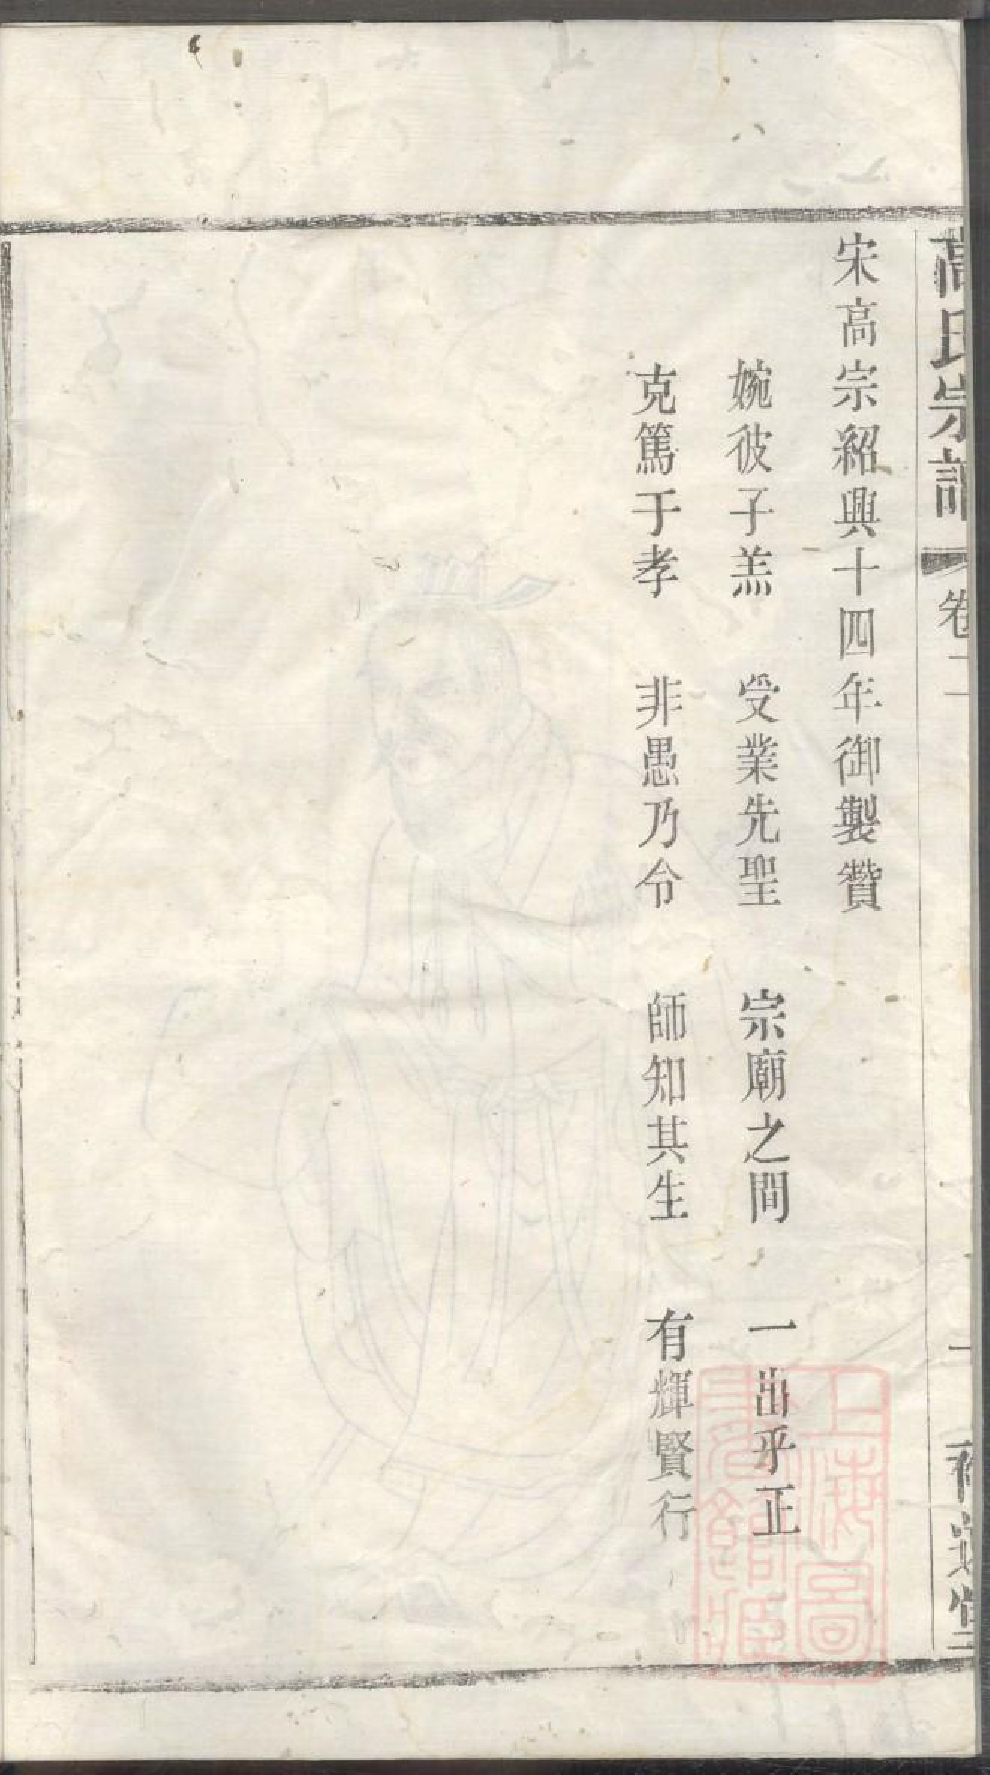 高氏宗譜
卷二
宋高宗紹興十四年御製贊
婉彼子羔　受業先聖　宗廟之間　一出乎正
克篤于孝　非愚乃令　師知其生　有輝賢行
上海圖
書館藏